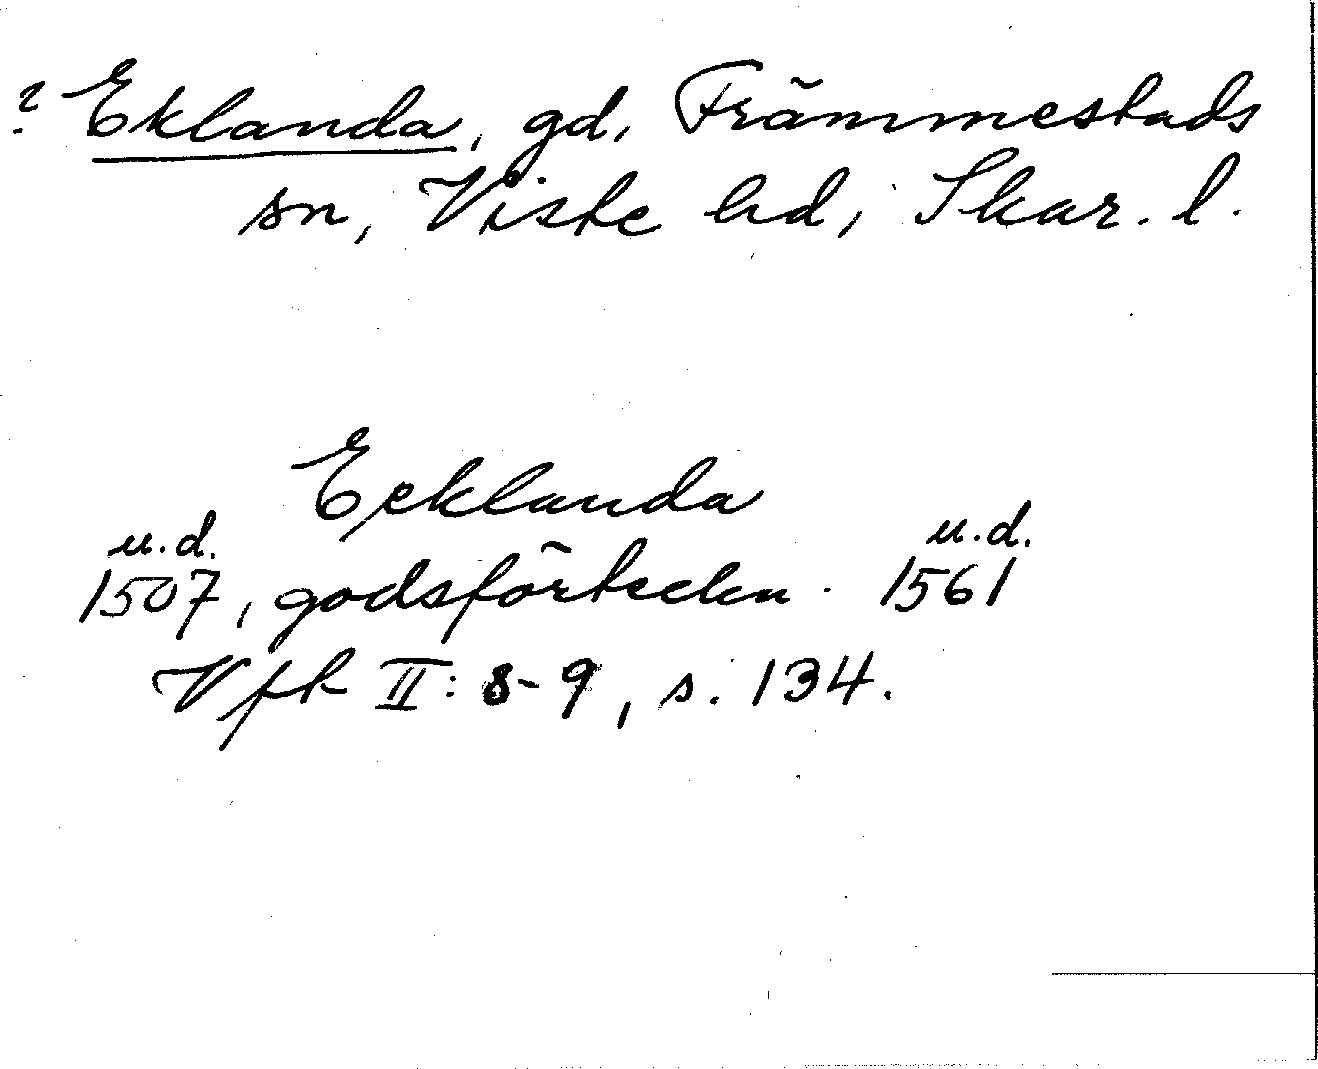 ? Eklanda, gd, Främmestads
sn, Viste hd, Skar. l.
Ecklanda
u.d. u.d.
1507, godsförteckn. 1561
Vfk II: 8-9, s. 134.